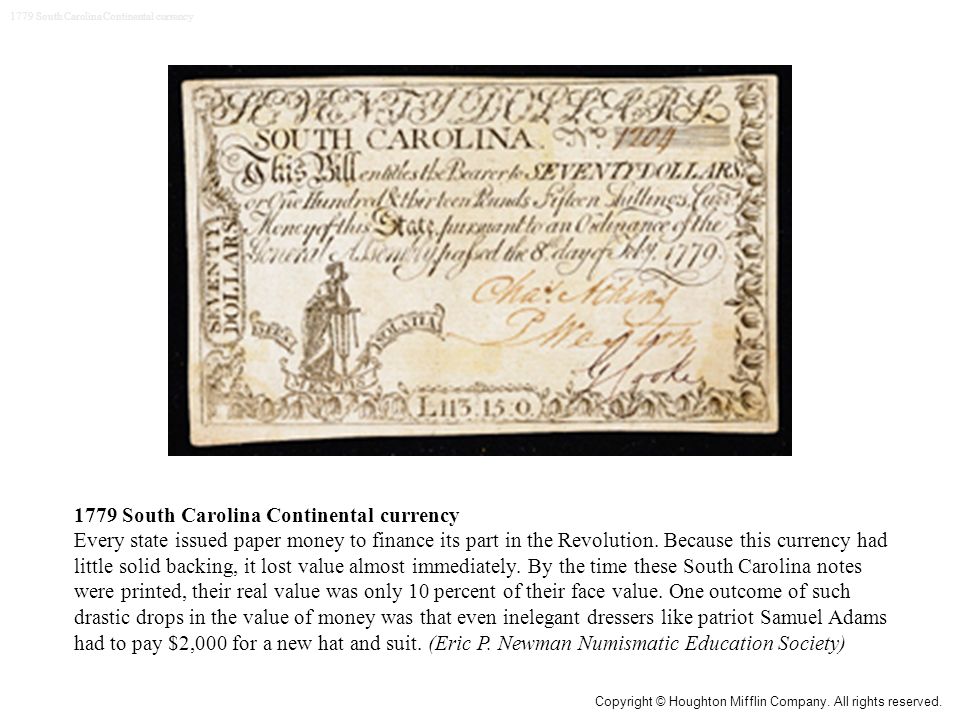 1779 South Carolina Continental currency
SEVENTY DOLLARS.
SOUTH CAROLINA. No. 1209
This Bill entitles the Bearer to SEVENTY DOLLARS,
or One Hundred & thirteen Pounds Fifteen Shillings, Curr.t
Money of this State, pursuant to an Ordinance of the
General Assembly passed the 8th day of Feby. 1779.
SEVENTY
DOLLARS
Chas. Atkins
G Cooke
SPES
MENTIS
SOLATIA
L113.15.0.
1779 South Carolina Continental currency
Every state issued paper money to finance its part in the Revolution. Because this currency had
little solid backing, it lost value almost immediately. By the time these South Carolina notes
were printed, their real value was only 10 percent of their face value. One outcome of such
drastic drops in the value of money was that even inelegant dressers like patriot Samuel Adams
had to pay $2,000 for a new hat and suit. (Eric P. Newman Numismatic Education Society)
Copyright © Houghton Mifflin Company. All rights reserved.